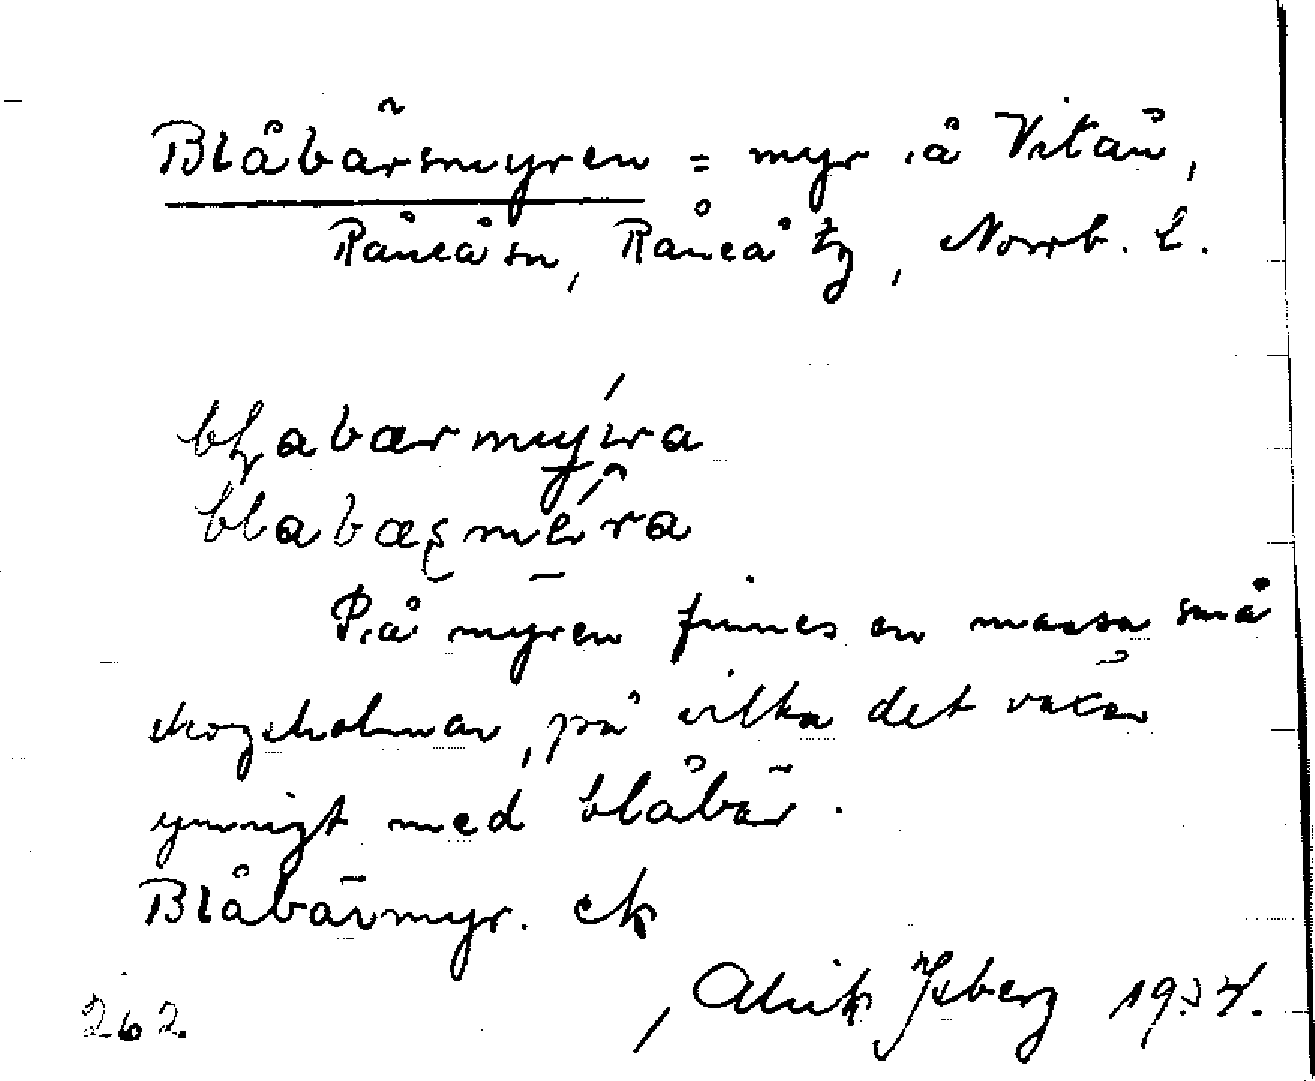 Blåbärsmyren = myr i å Vitån,
Råneå sn, Råneå tg, Norrb. L.
blabærmyra
blabæsmera
På myren finnes en massa små
skogsholmar, på vilka det växer
ymnigt med blåbär.
Blåbärmyr. ek
Alrik Isberg 1934.
262